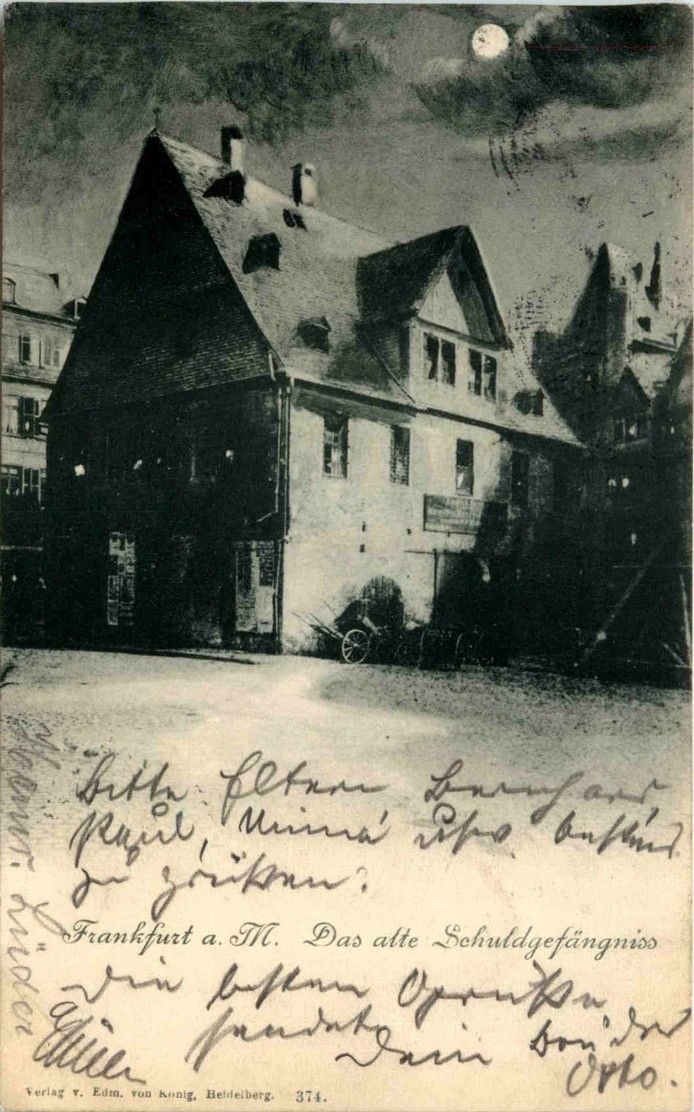 Bitte Eltern Bernhard,
Paul, Minna usw bestens
zu grüßen.
Frankfurt a. M. Das alte Schuldgefängniss
Die besten Grüße
sendet
Dein Bruder
Otto.
Heinr. Lüder
Verlag v. Edm. von König, Heidelberg. 374.